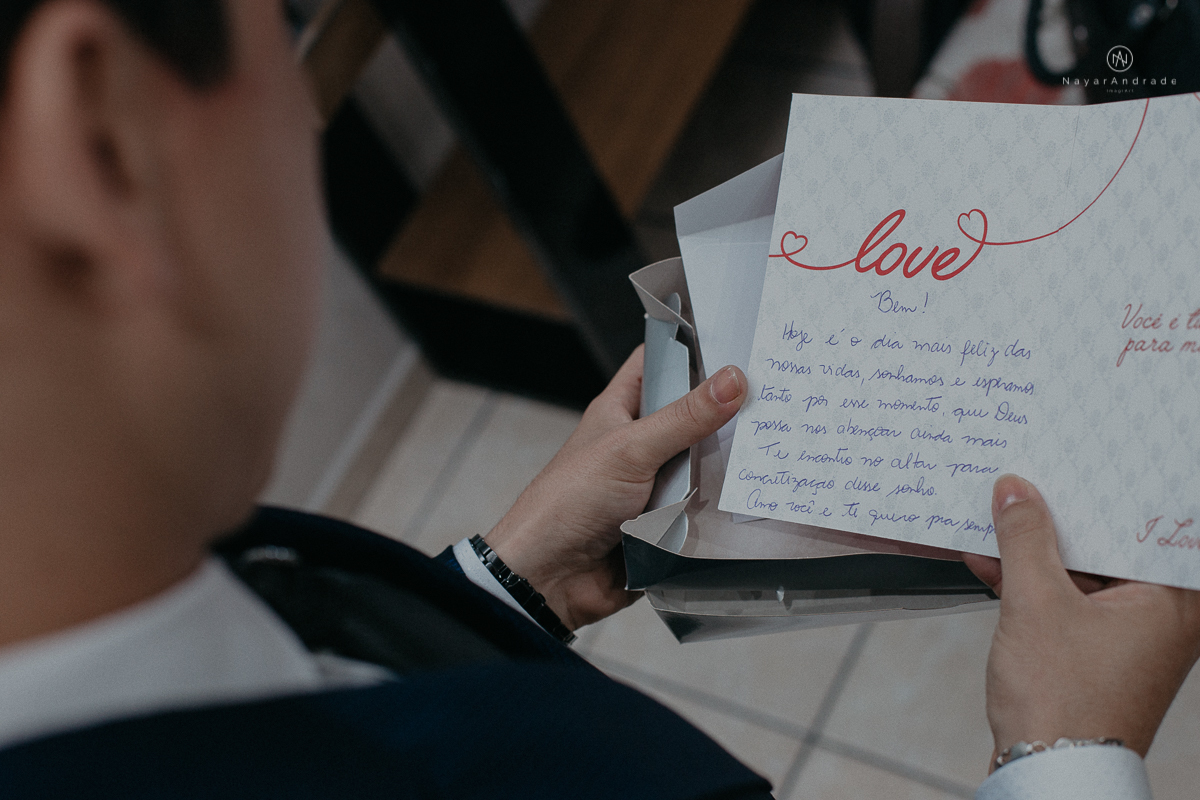 NayarAndrade
love
Bem!
Hoje é o dia mais feliz das
nossas vidas, sonhamos e esperamos
tanto por esse momento, que Deus
possa nos abençoar ainda mais
Te encontro no altar para
concretização desse sonho.
Amo você e te quero pra semp
Você é t
para m
I Lov